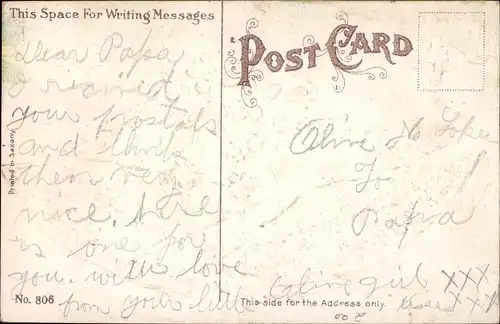 This Space For Writing Messages
Dear Papa
I recived
your postals
and think
them very
nice. here
is one for
you. with love
from your little
Olive girl XXX
XXX
No. 806
Printed in Saxony
POST CARD
Olive
To
Papa
This side for the Address only.